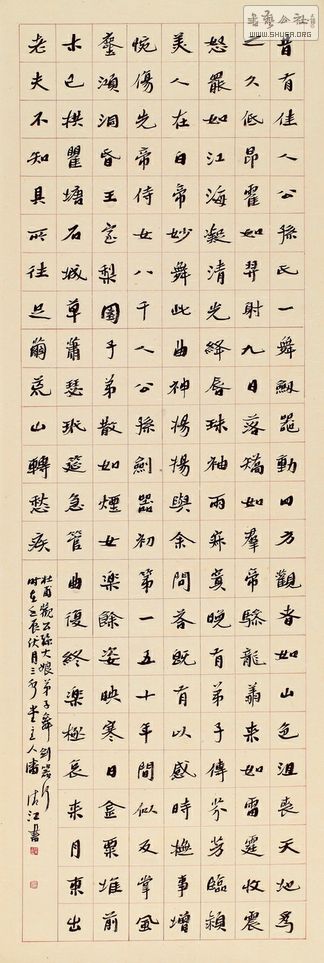 书艺公社
WWW.SHUFA.ORG
昔有佳人公孫氏一舞劔器動四方觀者如山色沮喪天地為
之久低昂霍如羿射九日落矯如羣帝驂龍翔來如雷霆收震
怒罷如江海凝清光絳唇珠袖兩寂寞晚有弟子傳芬芳臨潁
美人在白帝妙舞此曲神揚揚與余問荅既有以感時撫事增
惋傷先帝侍女八千人公孫劍器初第一五十年間似反掌風
塵澒洞昏王室梨園子弟散如煙女樂餘姿映寒日金粟堆前
木已拱瞿塘石城草蕭瑟玳筵急管曲復終樂極哀來月東出
老夫不知其所往足繭荒山轉愁疾
杜甫觀公孫大娘弟子舞劍器行
時在壬辰伏月三堂主人潘江書